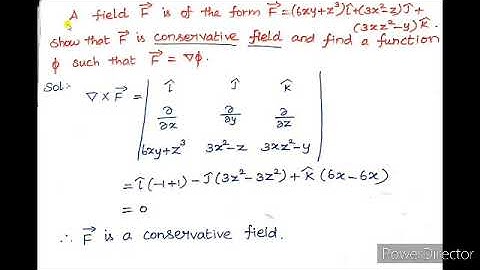 A field F⃗ is of the form F⃗ = (6xy+z³)î+(3x² z)ĵ+
(3xz²-y)k̂.
show that F⃗ is conservative field and find a function
ϕ such that F⃗ = ∇ϕ.
Sol:-
∇ × F⃗ = | î ĵ k̂ |
| ∂/∂x ∂/∂y ∂/∂z |
| 6xy+z³ 3x²-z 3xz²-y |
= î(-1+1) - ĵ(3z²-3z²) + k̂(6x-6x)
= 0
∴ F⃗ is a conservative field.
PowerDirector